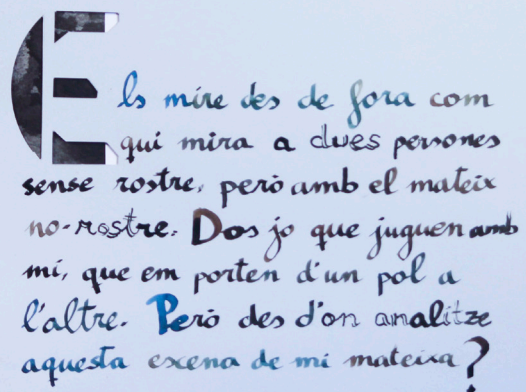 Els mire des de fora com
qui mira a dues persones
sense rostre, però amb el mateix
no-rostre. Dos jo que juguen amb
mi, que em porten d'un pol a
l'altre. Però des d'on analitze
aquesta escena de mi mateixa?